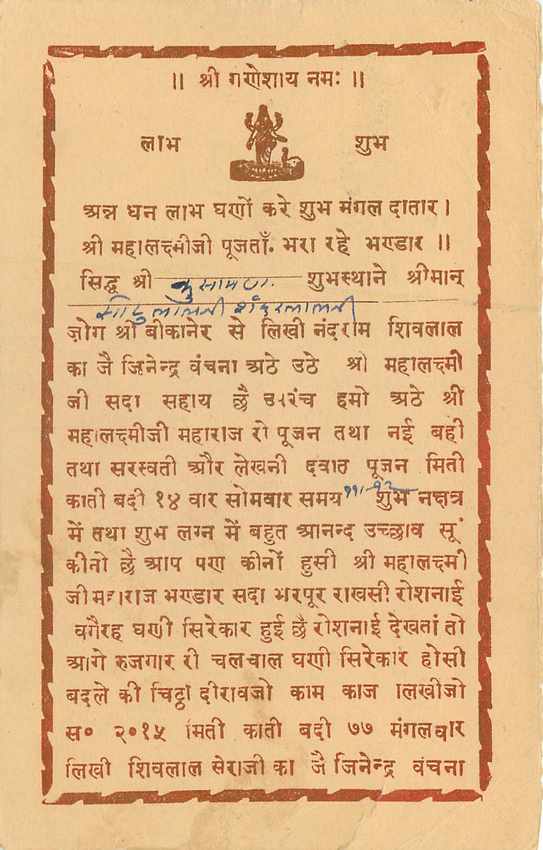 ॥ श्री गणेशाय नमः ॥
लाभ शुभ
अन्न धन लाभ घणों करे शुभ मंगल दातार ।
श्री महालक्ष्मीजी पूजताँ. भरा रहे भण्डार ॥
सिद्ध श्री शुभस्थाने श्रीमान्
जोग श्री बीकानेर से लिखी नंदराम शिवलाल
का जै जिनेन्द्र वंचना अठे उठे श्री महालक्ष्मी
जी सदा सहाय छै उपरंच हमो अठे श्री
महालक्ष्मीजी महाराज रो पूजन तथा नई बही
तथा सरस्वती और लेखनी दवात पूजन मिती
काती बदी १४ वार सोमवार समय शुभ नक्षत्र
में तथा शुभ लग्न में बहुत आनन्द उच्छाव सूं
कीनो छै आप पण कीनों हुसी श्री महालक्ष्मी
जी महाराज भण्डार सदा भरपूर राखसी रोशनाई
वगैरह घणी सिरेकार हुई छै रोशनाई देखतां तो
आगे रुजगार री चलचाल घणी सिरेकार होसी
बदले की चिट्ठी दीरावजो काम काज लिखीजो
स० २०१५ मिती काती बदी ७७ मंगलवार
लिखी शिवलाल सेराजी का जै जिनेन्द्र वंचना